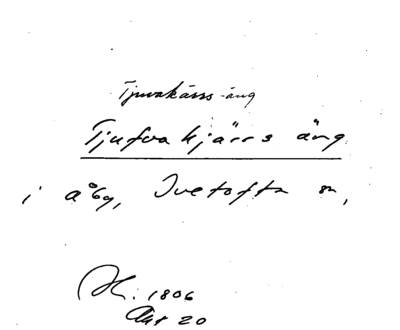 Tjuvakärrs-äng
Tjufva kjärrs äng
i Åby, Ivetofta sn,
H. 1806
Akt 20